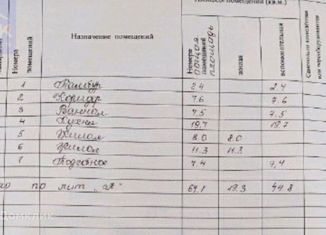 Номера помещений
Назначение помещений
Номера общая площадь
жилая
вспомогательная
1 Тамбур 2.4 2.4
2 Коридор 7.6 7.6
3 Ванная 7.5 7.5
4 Кухня 19.7 19.7
5 Жилая 8.0 8.0
6 Жилая 11.3 11.3
7 Подсобное 7.4 7.4
по лит „А" 64.1 19.3 44.8